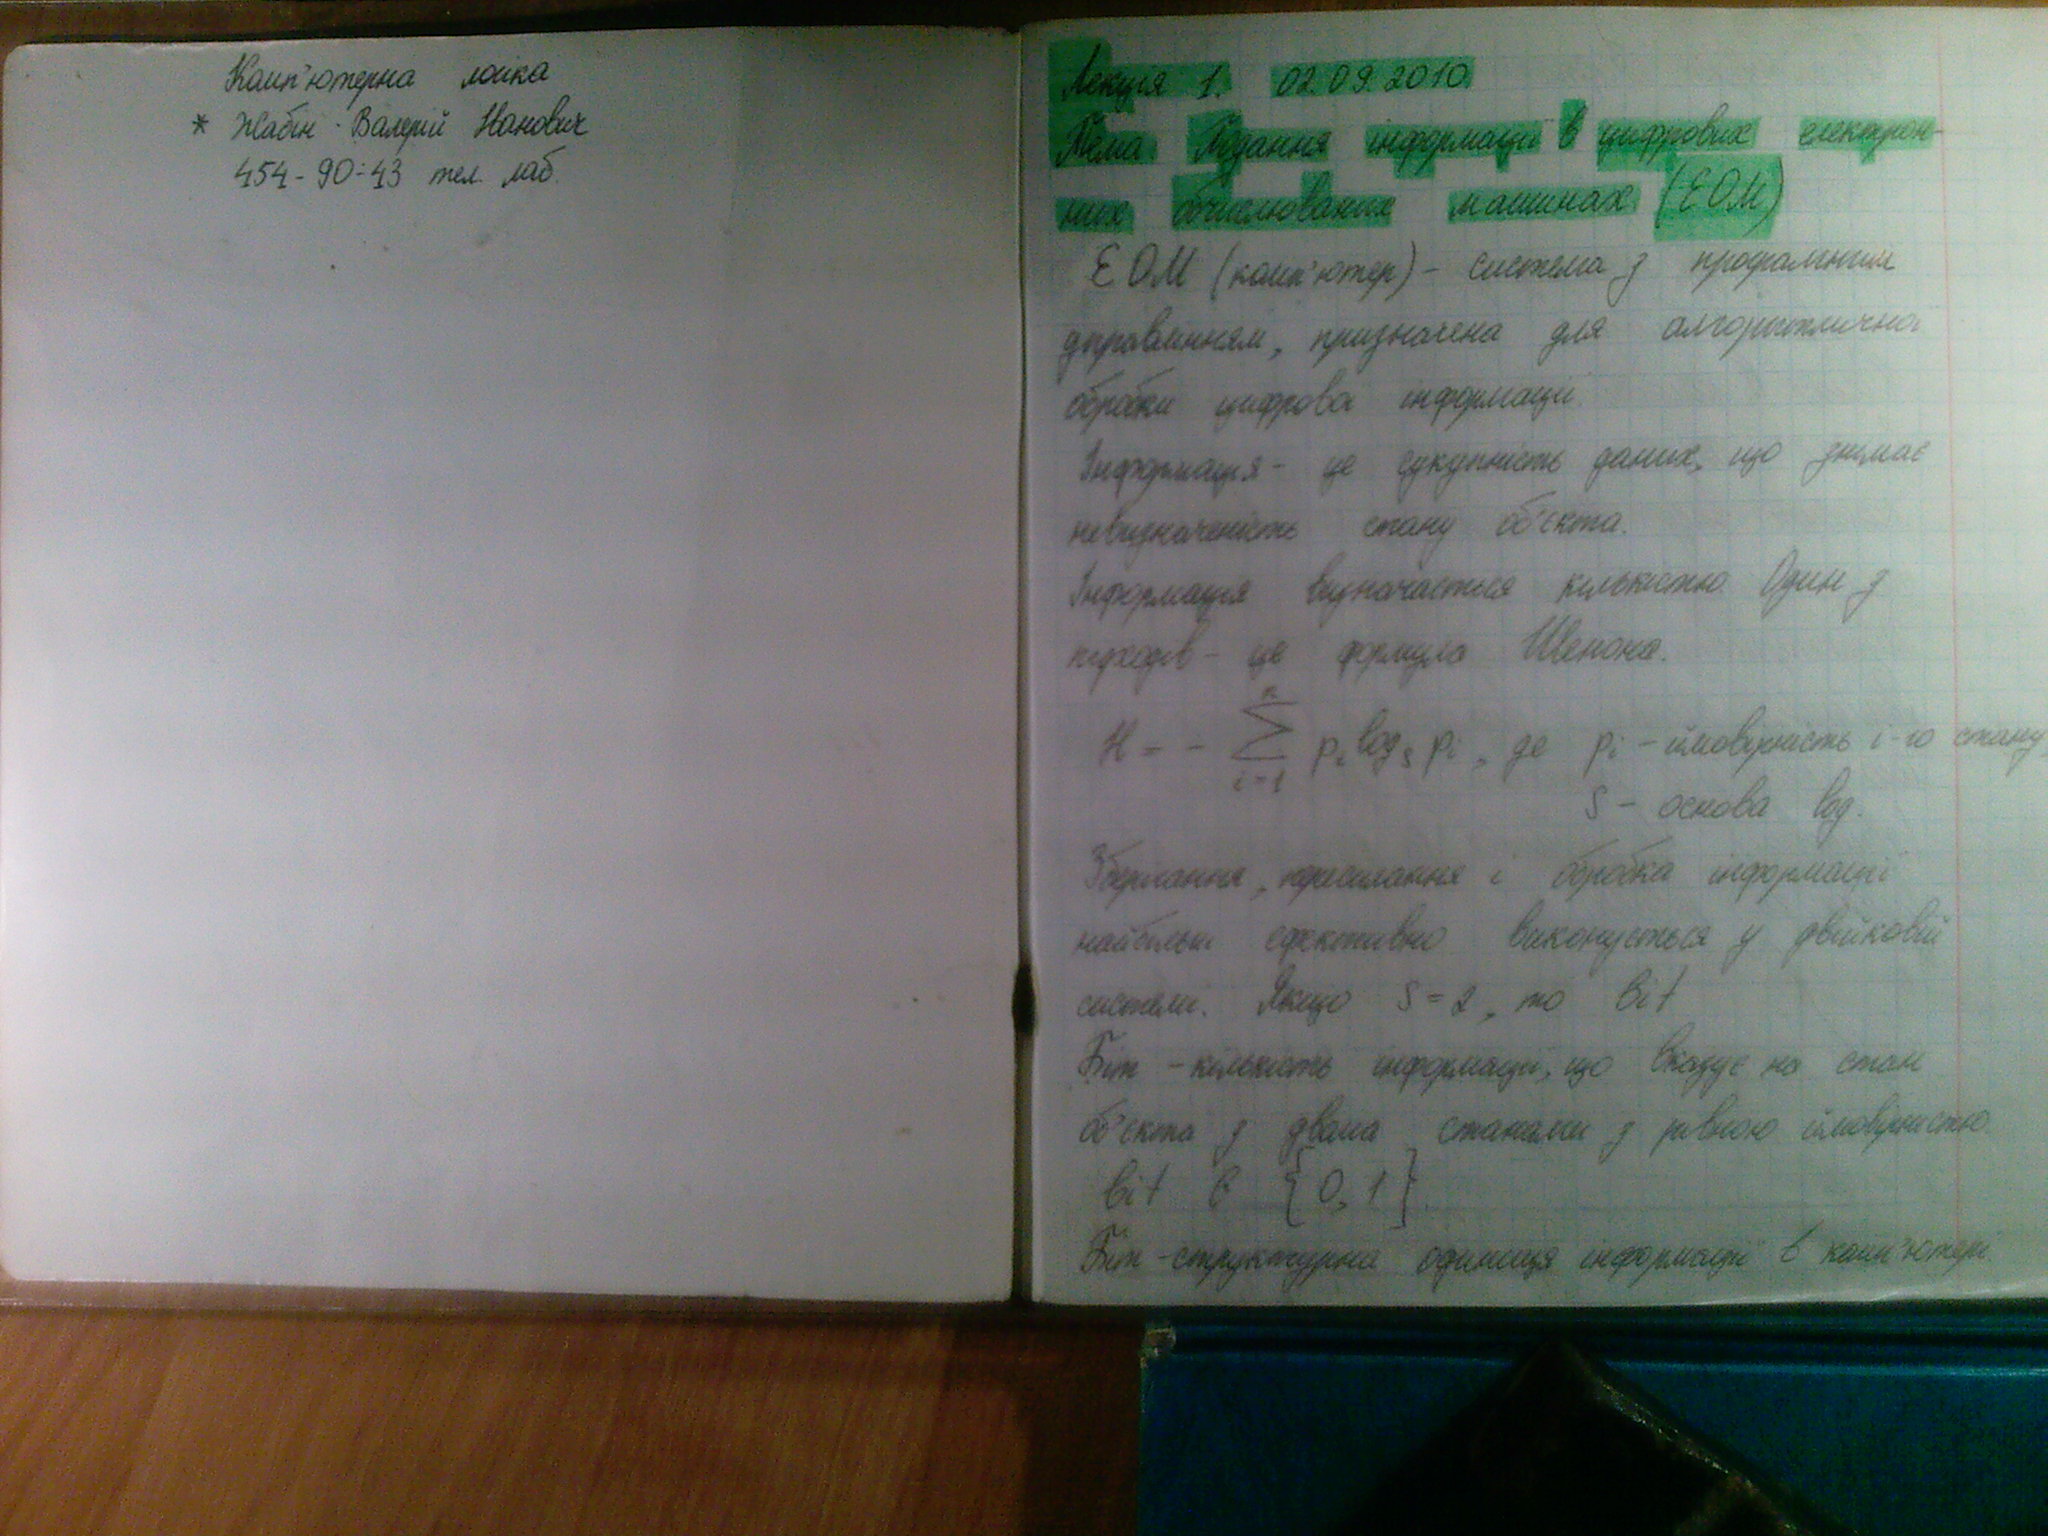 Комп'ютерна логіка
* Жабін Валерій Іванович
454-90-43 тел. лаб.
Лекція 1. 02.09.2010.
Тема. Подання інформації в цифрових електрон-
них обчислюваних машинах (ЕОМ)
ЕОМ (комп'ютер) - система з програмним
управлінням, призначена для алгоритмічної
обробки цифрової інформації.
Інформація - це сукупність даних, що знімає
невизначеність стану об'єкта.
Інформація визначається кількістю. Один з
підходів - це формула Шенона.
H = - \sum_{i=1}^{n} p_i log_s p_i , де p_i - ймовірність i-го стану,
S - основа log.
Зберігання, пересилання і обробка інформації
найбільш ефективно виконується у двійковій
системі. Якщо S = 2, то bit
Біт - кількість інформації, що вказує на стан
об'єкта з двома станами з рівною ймовірністю.
bit є {0, 1}.
Біт - структурна одиниця інформації в комп'ютері